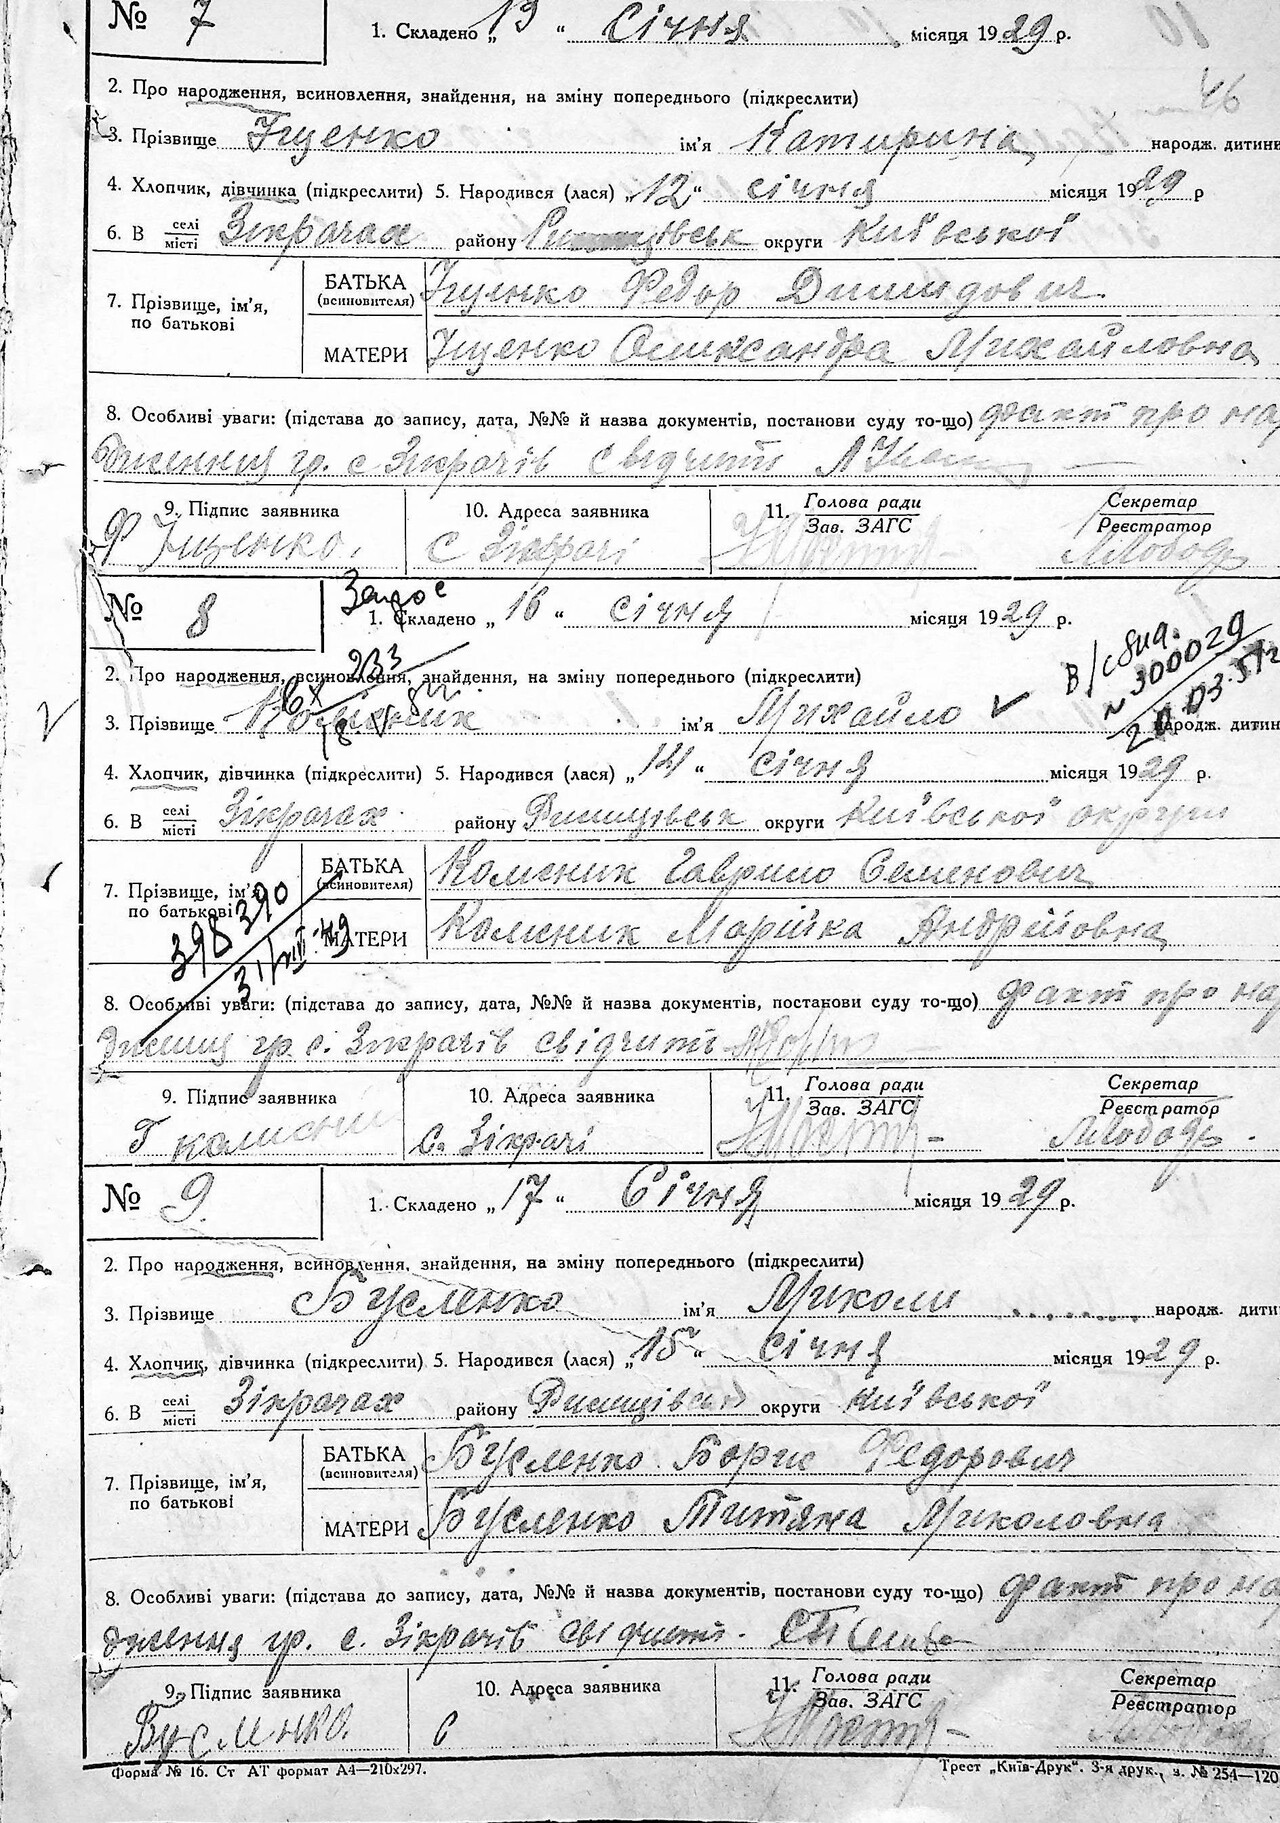 № 7 1. Складено „ 13 “ Січня місяця 1929 р.
46
2. Про народження, всиновлення, знайдення, на зміну попереднього (підкреслити)
3. Прізвище Іщенко ім'я Катирина народж. дитини
4. Хлопчик, дівчинка (підкреслити) 5. Народився (лася) „ 12 “ січня місяця 1929 р
6. В селі/місті Зікрачах району округи Київської
7. Прізвище, ім'я, по батькові
БАТЬКА (всиновителя) Іщенко Федор
МАТЕРИ Іщенко Олександра Михайловна
8. Особливі уваги: (підстава до запису, дата, №№ й назва документів, постанови суду то-що) факт про на
дження гр. с Зікрачів свідчить
9. Підпис заявника 10. Адреса заявника 11. Голова ради/Зав. ЗАГС Секретар/Реєстратор
Ф Іщенко. с Зікрачі
№ 8 1. Складено „ 16 “ січня місяця 1929 р.
2. Про народження, всиновлення, знайдення, на зміну попереднього (підкреслити)
№ 300029
20.03.51г
3. Прізвище ім'я Михайло народж. дитин
4. Хлопчик, дівчинка (підкреслити) 5. Народився (лася) „ 14 “ січня місяця 1929 р.
6. В селі/місті Зікрачах району Ржищівськ округи Київської округи
7. Прізвище, ім'я, по батькові
БАТЬКА (всиновителя) Колісник Гаврило Семенович
МАТЕРИ Колісник Марійка Андрійовна
398390
31/VIII-49
8. Особливі уваги: (підстава до запису, дата, №№ й назва документів, постанови суду то-що) факт про на
гр. с. Зікрачів свідчить
9. Підпис заявника 10. Адреса заявника 11. Голова ради/Зав. ЗАГС Секретар/Реєстратор
Г с. Зікрачі
№ 9. 1. Складено „ 17 “ Січня місяця 1929 р.
2. Про народження, всиновлення, знайдення, на зміну попереднього (підкреслити)
3. Прізвище Бусленко ім'я Миколи народж. дити
4. Хлопчик, дівчинка (підкреслити) 5. Народився (лася) „ 15 “ січня місяця 1929 р.
6. В селі/місті Зікрачах району Ржищівськ округи Київської
7. Прізвище, ім'я, по батькові
БАТЬКА (всиновителя) Бусленко Борис Федорович
МАТЕРИ Бусленко Титяна Миколовна
8. Особливі уваги: (підстава до запису, дата, №№ й назва документів, постанови суду то-що) факт про на
дження гр. с. Зікрачів свідчить.
9. Підпис заявника 10. Адреса заявника 11. Голова ради/Зав. ЗАГС Секретар/Реєстратор
Бусленко. с
Форма № 16. Ст АТ формат А4—210х297. Трест „Київ-Друк“. 3-я друк., з. № 254—120